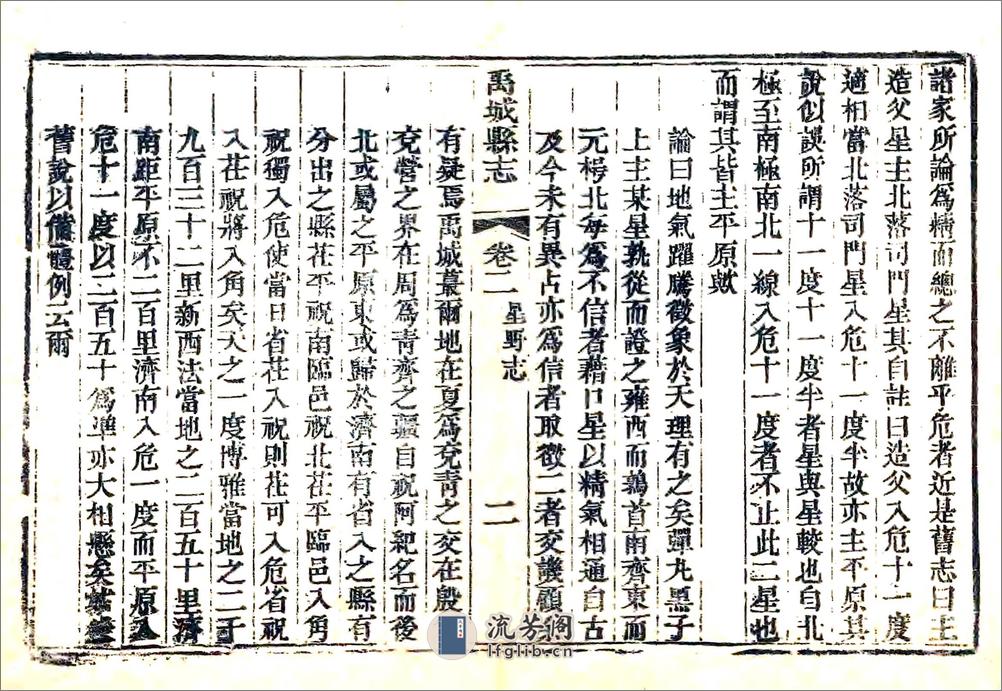 諸家所論爲精而總之不離乎危者近是舊志曰主
造父星主北落司門星其自註曰造父入危十一度
適相當北落司門星入危十一度半故亦主平原其
說似誤所謂十一度十一度半者星與星較也自北
極至南極南北一線入危十一度者不止此二星也
而謂其皆主平原歟
論曰地氣躍騰徵象於天理有之矣彈丸黑子
上主某星孰從而證之雍西而鶉首南齊東而
元枵北每爲不信者藉口星以精氣相通自古
及今未有異占亦爲信者取徵二者交譏顧
禹城縣志
卷二
星野志
二
有疑焉禹城蕞爾地在夏爲兗青之交在殷
兗營之界在周爲青齊之疆自祝阿紀名而後
北或屬之平原東或歸於濟南有省入之縣有
分出之縣茌平祝南臨邑祝北茌平臨邑入角
祝獨入危使當日省茌入祝則茌可入危省祝
入茌祝將入角矣天之一度博雅當地之二千
九百三十二里新西法當地之二百五十里濟
南距平原不二百里濟南入危一度而平原入
危十一度以二百五十爲準亦大相懸矣
舊說以備體例云爾
流芳閣
lfglib.cn